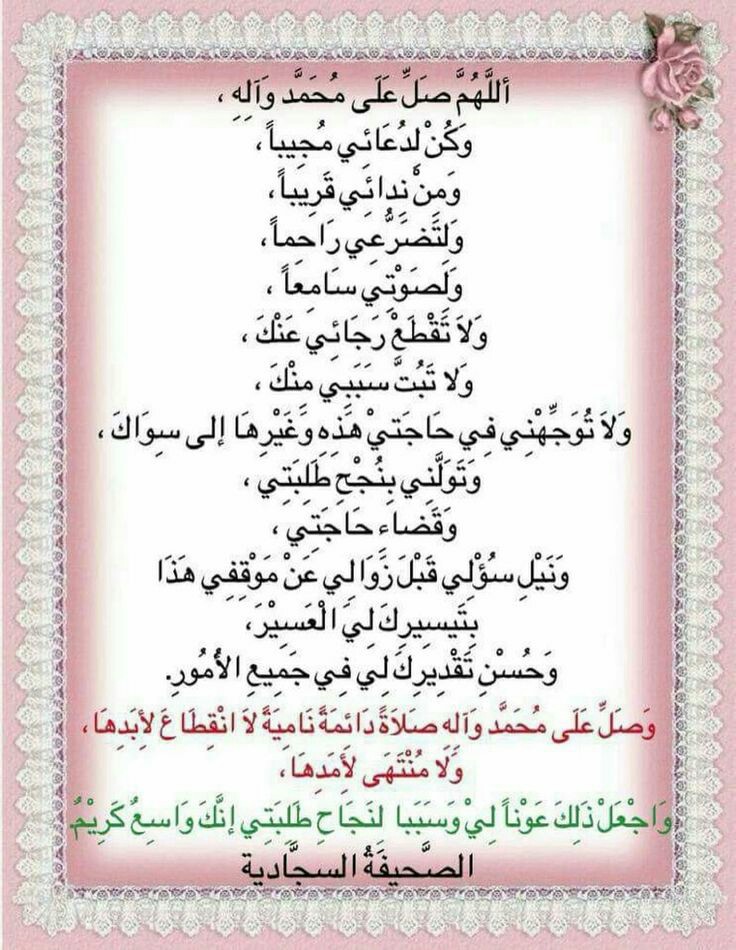 أللَّهُمَّ صَلِّ عَلَى مُحَمَّد وَآلِهِ ،
وَكُنْ لِدُعَائِي مُجِيباً ،
وَمِنْ نِدائِي قَرِيباً ،
وَلِتَضَرُّعِي رَاحِماً ،
وَلِصَوْتِي سَامِعاً ،
وَلاَ تَقْطَعْ رَجَائِي عَنْكَ ،
وَلا تَبُتَّ سَبَبِي مِنْكَ ،
وَلاَ تُوَجِّهْنِي فِي حَاجَتيْ هَذِهِ وَغَيْرِهَا إلى سِوَاكَ ،
وَتَوَلَّنِي بِنُجْحِ طَلِبَتِي ،
وَقَضاء حَاجَتِي ،
وَنَيْلِ سُؤْلِي قَبْلَ زَوَالِي عَنْ مَوْقِفِي هَذَا
بِتَيسِيرِكَ لِيَ الْعَسِيْرَ،
وَحُسْنِ تَقْدِيرِكَ لِي فِي جَمِيعِ الأُمُورِ.
وَصَلِّ عَلَى مُحَمَّد وَآله صَلاَةً دَائِمَةً نَامِيَةً لاَ انْقِطَاعَ لأِبَدِهَا ،
وَلَا مُنْتَهَى لأِمَدِهَا ،
وَاجْعَلْ ذَلِكَ عَوْناً لِيْ وَسَبَبا لِنَجَاحِ طَلِبَتِي إنَّكَ وَاسِعٌ كَرِيْمٌ.
الصَّحيفَةُ السجَّادية